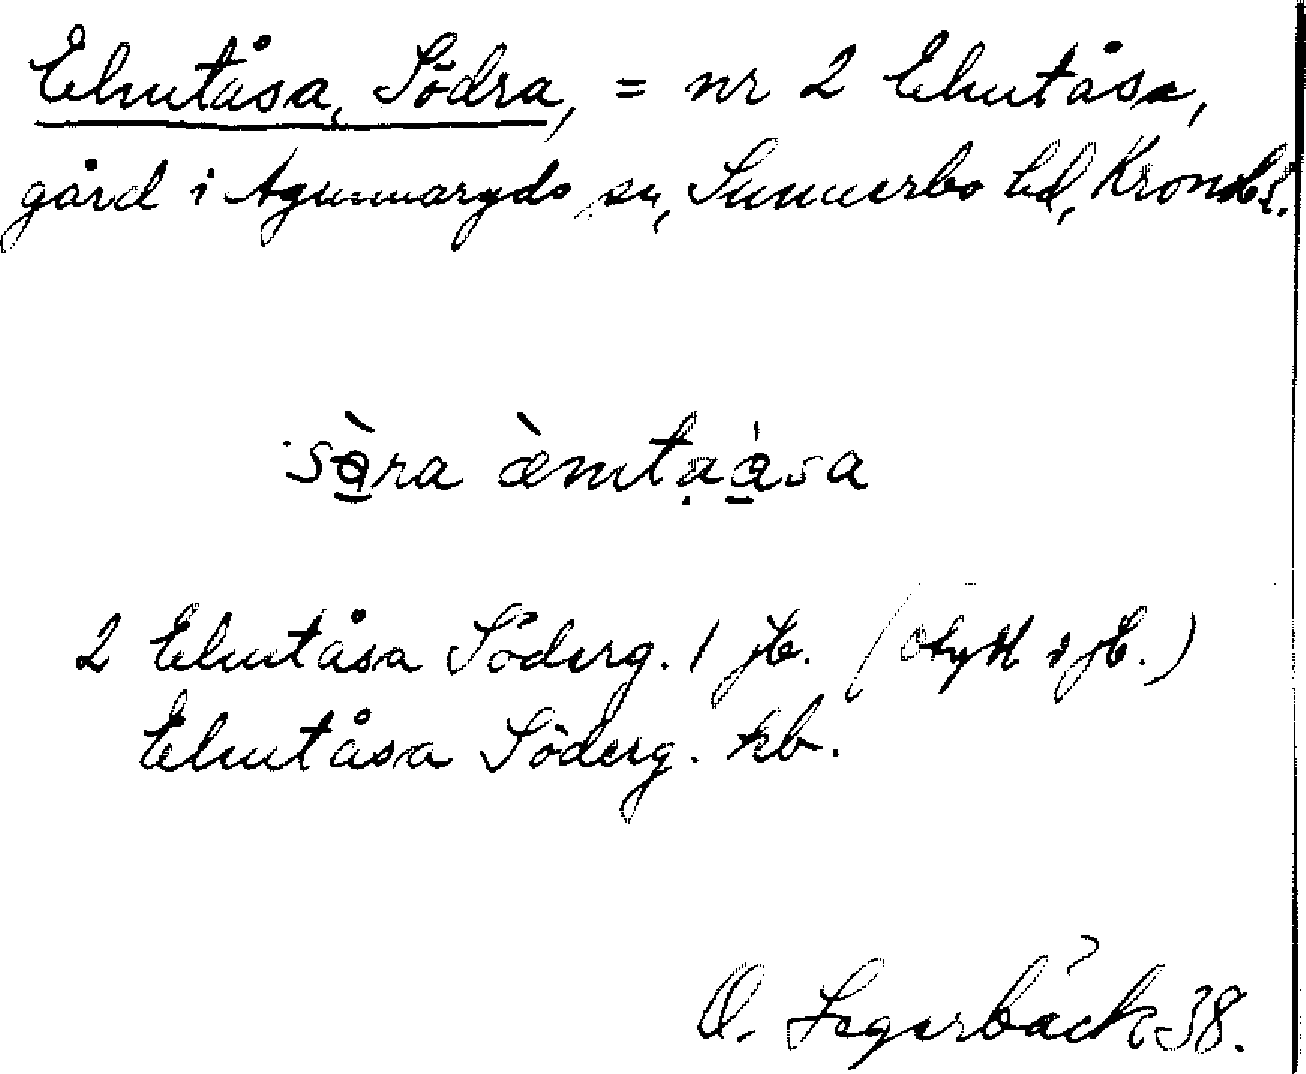 Elmtåsa, Södra, = nr 2 Elmtåsa,
gård i Agunnaryds sn, Sunnerbo hd, Kronob l.
sàra æ̀mtạása
2 Elmtåsa Söderg. 1 jb. (otyd i jb.)
Elmtåsa Söderg. kb.
O. Lagerbäck 38.